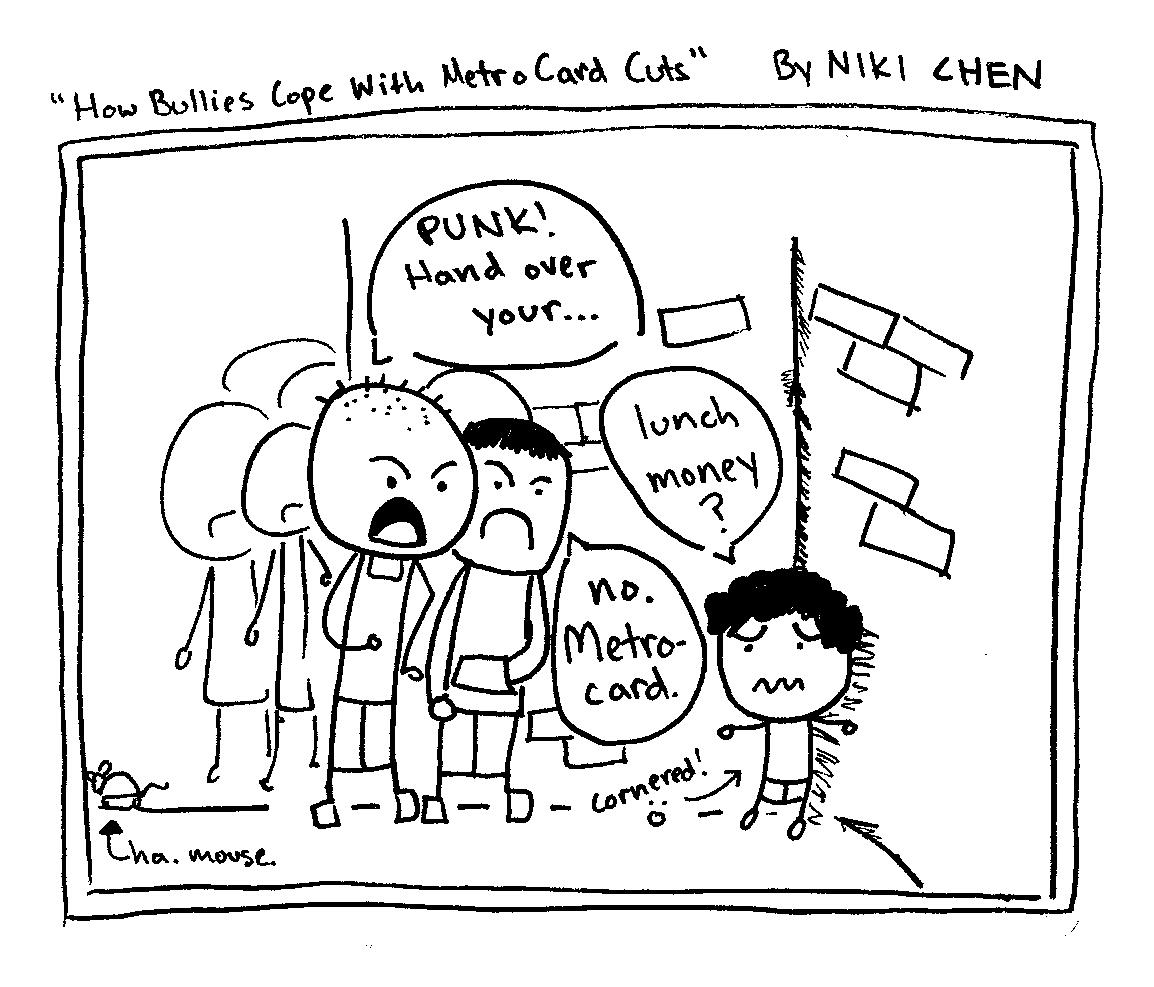 "How Bullies Cope With MetroCard Cuts" By NIKI CHEN
PUNK!
Hand over
your...
lunch
money
?
no.
Metro-
card.
cornered!
ha. mouse.